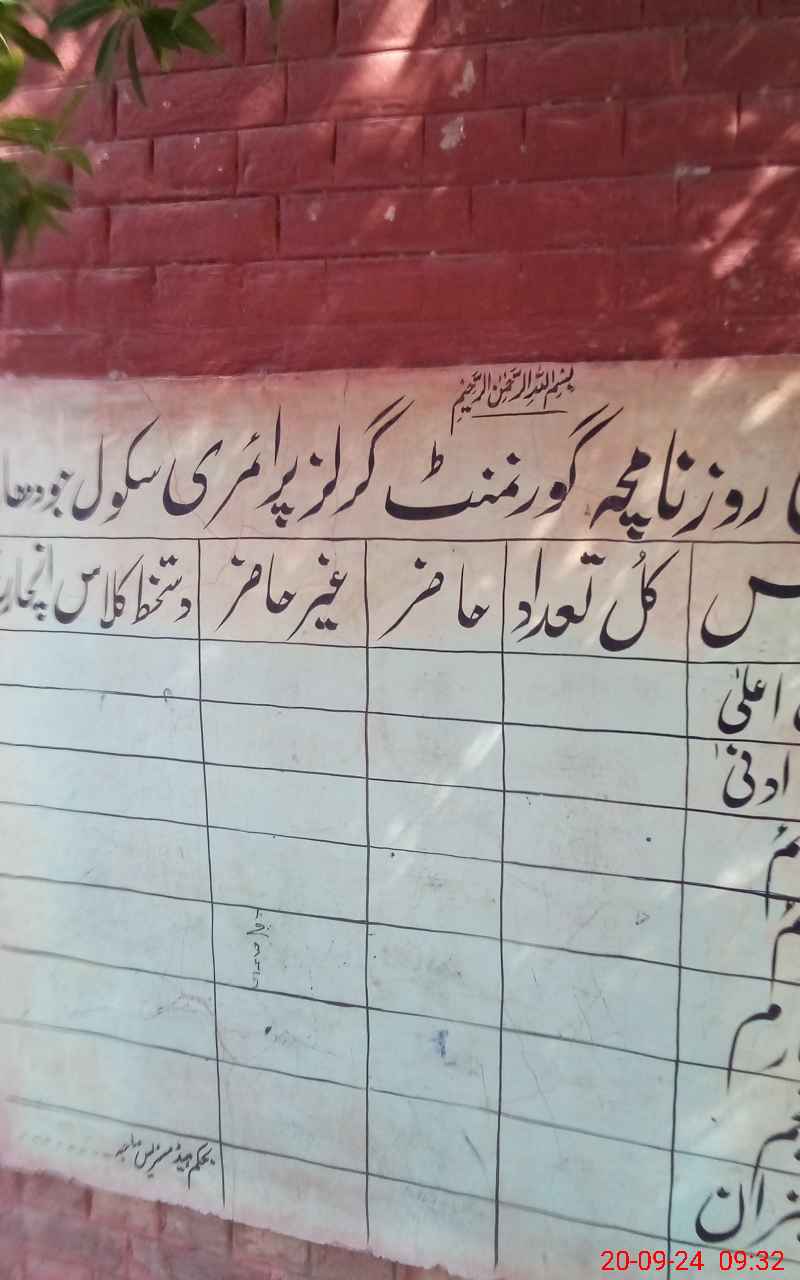 بِسْمِ اللّٰہِ الرَّحْمٰنِ الرَّحِیْمِ
روزنامچہ گورنمنٹ گرلز پرائمری سکول جودھا
کُل تعداد حاضر غیر حاضر دستخط کلاس انچار
اعلیٰ
ادنیٰ
بحکم ہیڈ مسٹریس صاحبہ
20-09-24 09:32